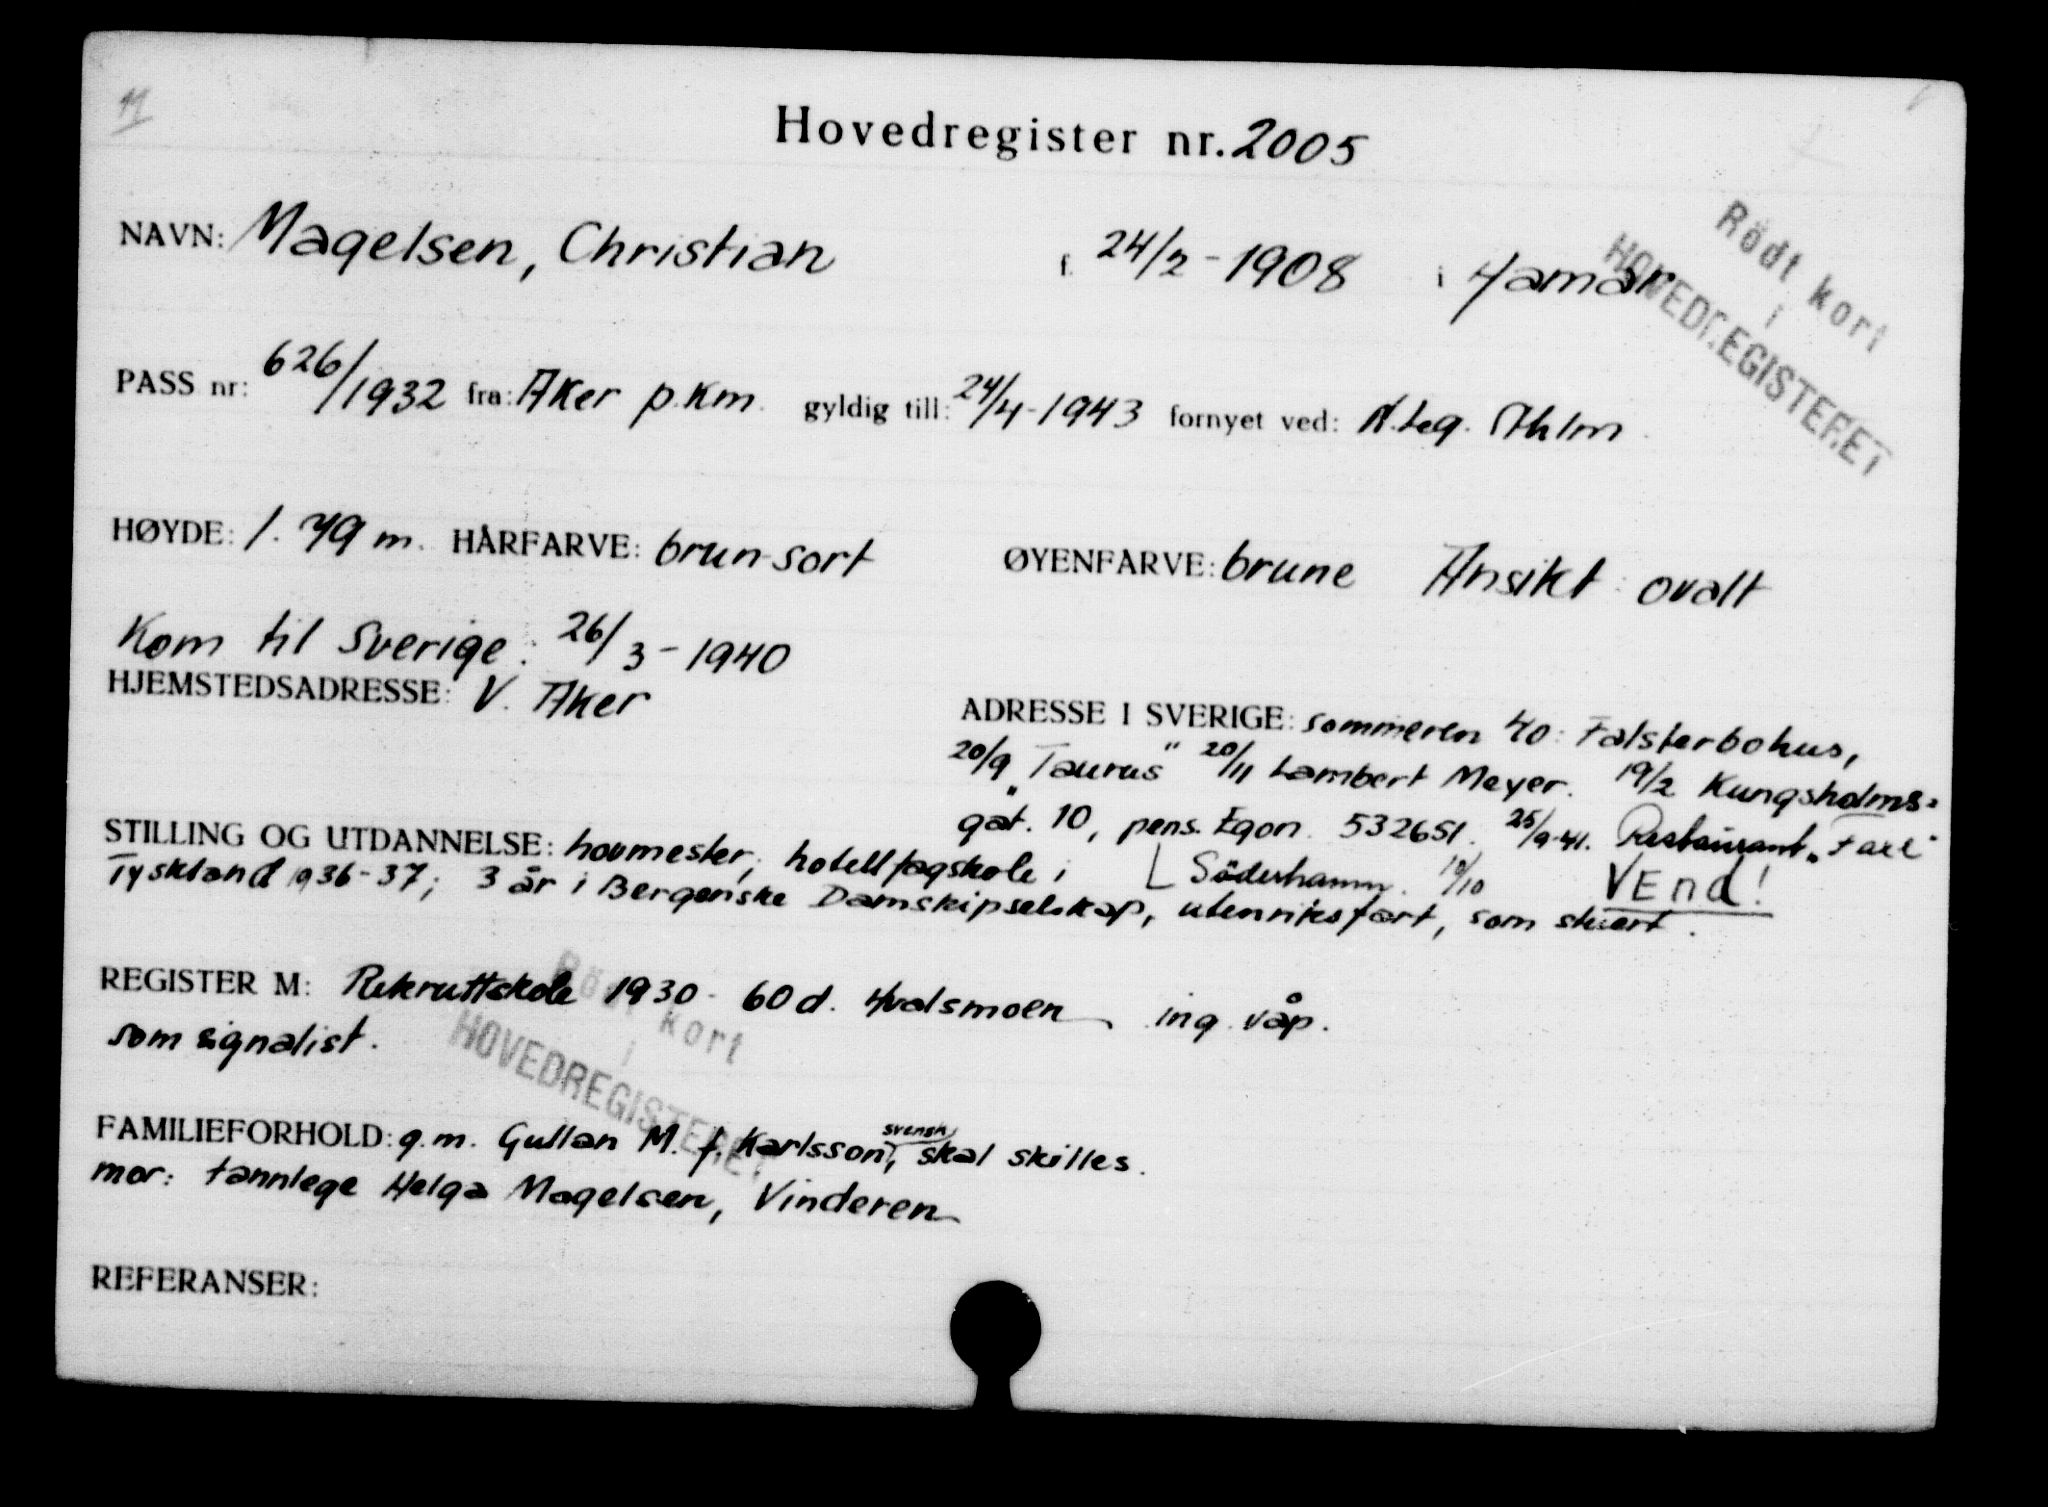 M
Hovedregister nr. 2005
NAVN: Magelsen, Christian f. 24/2-1908 i Hamar
Rödt kort
i
HOVEDREGISTERET
PASS nr: 626/1932 fra: Aker p.km. gyldig till: 24/4-1943 fornyet ved: N.Leg. Sthlm
HØYDE: 1.79 m. HÅRFARVE: brun-sort ØYENFARVE: brune Ansikt: ovalt
Kom til Sverige: 26/3-1940
HJEMSTEDSADRESSE: V. Aker
ADRESSE I SVERIGE: sommeren 40: Falsterbohus,
20/9 "Taurus" 20/11 Lambert Meyer. 19/2 Kungsholms=
gat. 10, pens. Egon. 532651. 25/9-41. Restaurant "Faxe"
Söderhamn. 10/10 VEnd!
STILLING OG UTDANNELSE: hovmester, hotellfagskole i
Tyskland 1936-37; 3 år i Bergenske Damskipselskap, utenriksfart, som stuert.
REGISTER M: Rekruttskole 1930 - 60 d. Hvalsmoen ing. våp.
som signalist.
Rödt kort
i
HOVEDREGISTERET
FAMILIEFORHOLD: g.m. Gullan M. f. Karlsson, svensk, skal skilles.
mor: tannlege Helga Magelsen, Vinderen
REFERANSER: